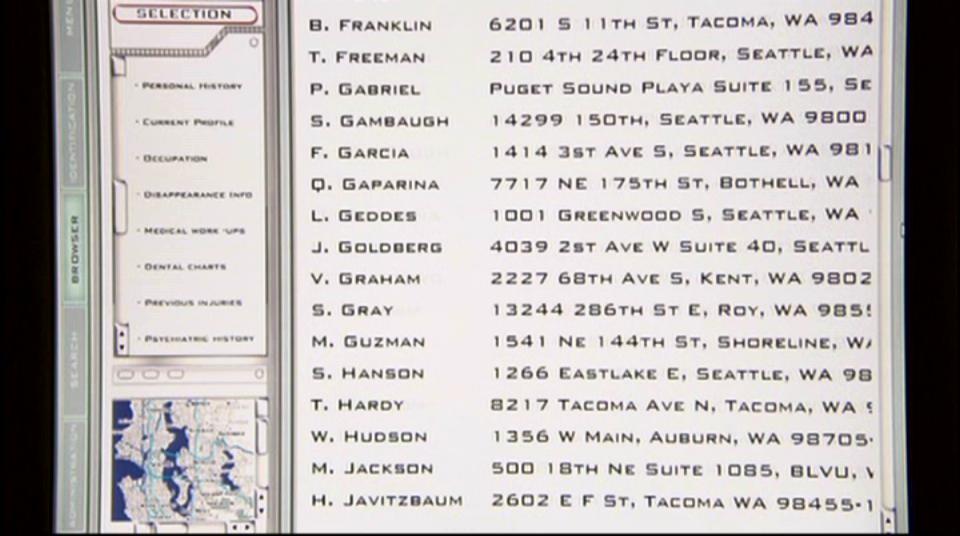 MENU
IDENTIFICATION
BROWSER
SEARCH
ADMINISTRATION
SELECTION
· PERSONAL HISTORY
· CURRENT PROFILE
· OCCUPATION
· DISAPPEARANCE INFO
· MEDICAL WORK-UPS
· DENTAL CHARTS
· PREVIOUS INJURIES
· PSYCHIATRIC HISTORY
B. FRANKLIN 6201 S 11TH ST, TACOMA, WA 984
T. FREEMAN 210 4TH 24TH FLOOR, SEATTLE, WA
P. GABRIEL PUGET SOUND PLAYA SUITE 155, SE
S. GAMBAUGH 14299 150TH, SEATTLE, WA 9800
F. GARCIA 1414 3ST AVE S, SEATTLE, WA 981
Q. GAPARINA 7717 NE 175TH ST, BOTHELL, WA
L. GEDDES 1001 GREENWOOD S, SEATTLE, WA
J. GOLDBERG 4039 2ST AVE W SUITE 40, SEATTL
V. GRAHAM 2227 68TH AVE S, KENT, WA 9802
S. GRAY 13244 286TH ST E, ROY, WA 985
M. GUZMAN 1541 NE 144TH ST, SHORELINE, WA
S. HANSON 1266 EASTLAKE E, SEATTLE, WA 98
T. HARDY 8217 TACOMA AVE N, TACOMA, WA
W. HUDSON 1356 W MAIN, AUBURN, WA 98705-
M. JACKSON 500 18TH NE SUITE 1085, BLVU,
H. JAVITZBAUM 2602 E F ST, TACOMA WA 98455-1